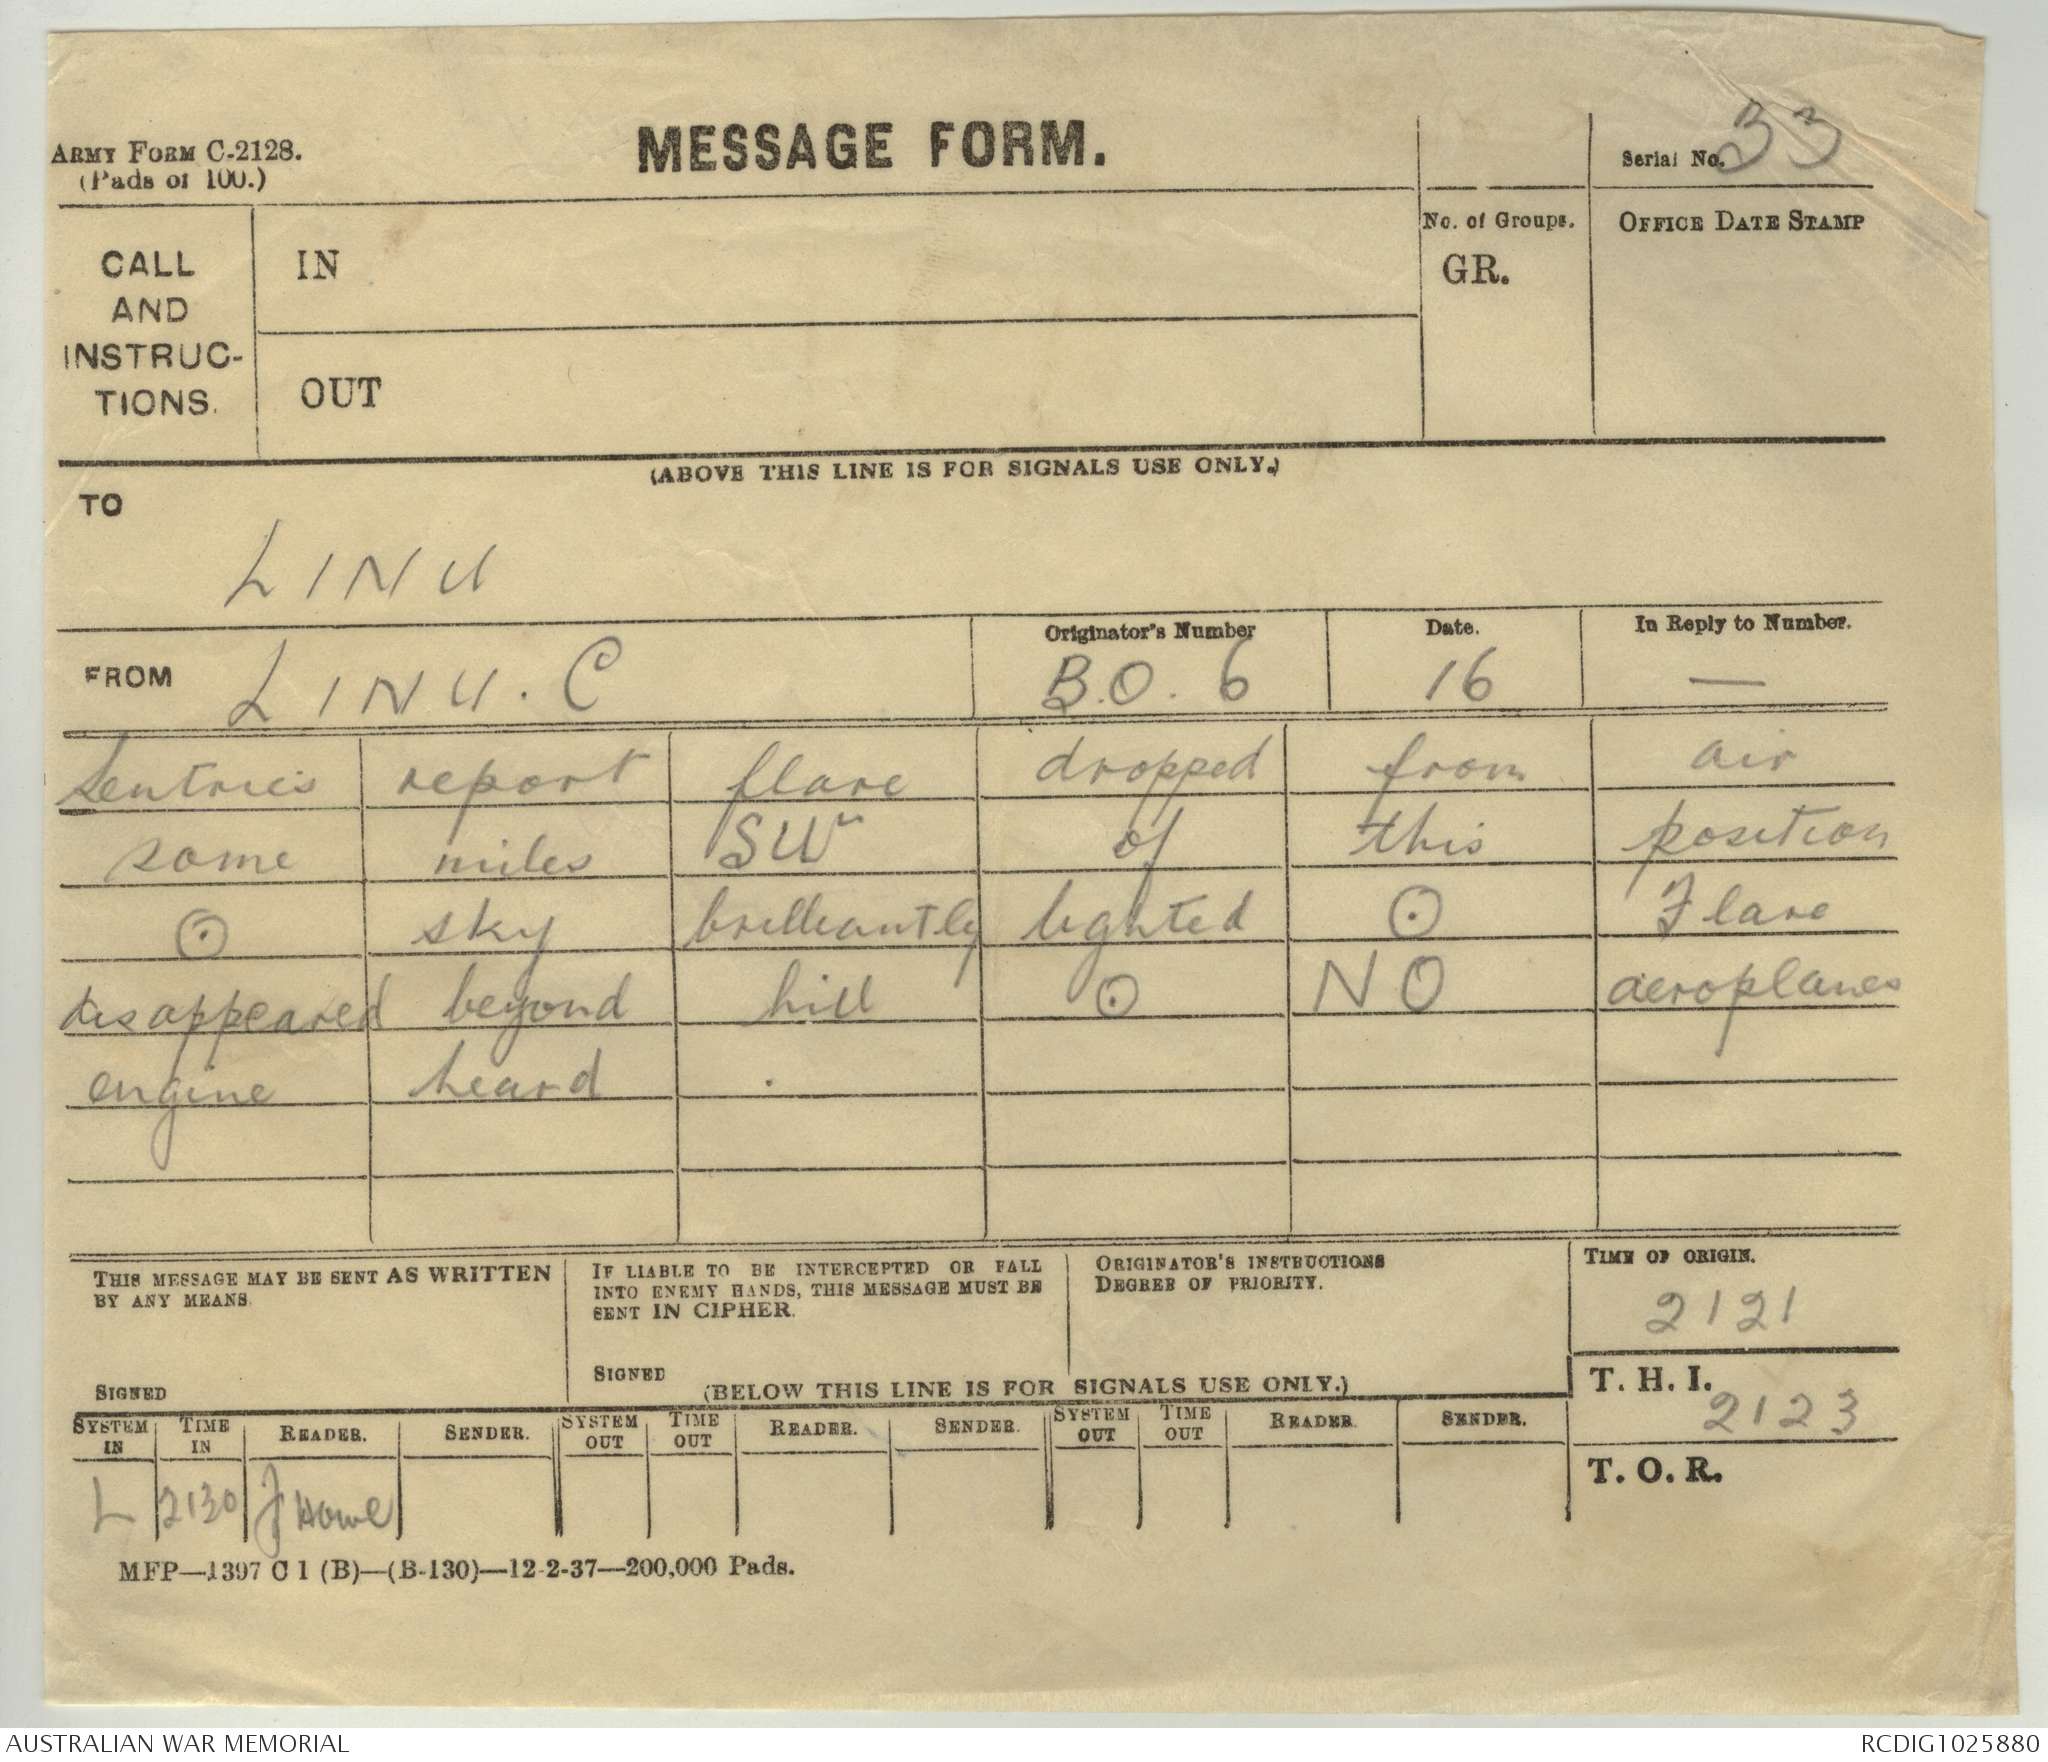 ARMY FORM C-2128.
(Pads of 100.)
MESSAGE FORM.
Serial No. 33
CALL
AND
INSTRUC-
TIONS.
IN
OUT
No. of Groups.
GR.
OFFICE DATE STAMP
(ABOVE THIS LINE IS FOR SIGNALS USE ONLY.)
TO
LINU
FROM LINU. C
Originator's Number
B.O. 6
Date.
16
In Reply to Number.
—
Sentries report flare dropped from air
some miles SW of this position
⊙ sky brilliantly lighted ⊙ Flare
disappeared beyond hill ⊙ NO aeroplanes
engine heard .
THIS MESSAGE MAY BE SENT AS WRITTEN
BY ANY MEANS.
SIGNED
IF LIABLE TO BE INTERCEPTED OR FALL
INTO ENEMY HANDS, THIS MESSAGE MUST BE
SENT IN CIPHER.
SIGNED
ORIGINATOR'S INSTRUCTIONS
DEGREE OF PRIORITY.
TIME OF ORIGIN.
2121
(BELOW THIS LINE IS FOR SIGNALS USE ONLY.)
T. H. I.
2123
T. O. R.
SYSTEM IN TIME IN READER. SENDER. SYSTEM OUT TIME OUT READER. SENDER. SYSTEM OUT TIME OUT READER. SENDER.
L 2130 J Howe
MFP—1397 C 1 (B)—(B-130)—12-2-37—200,000 Pads.
AUSTRALIAN WAR MEMORIAL
RCDIG1025880